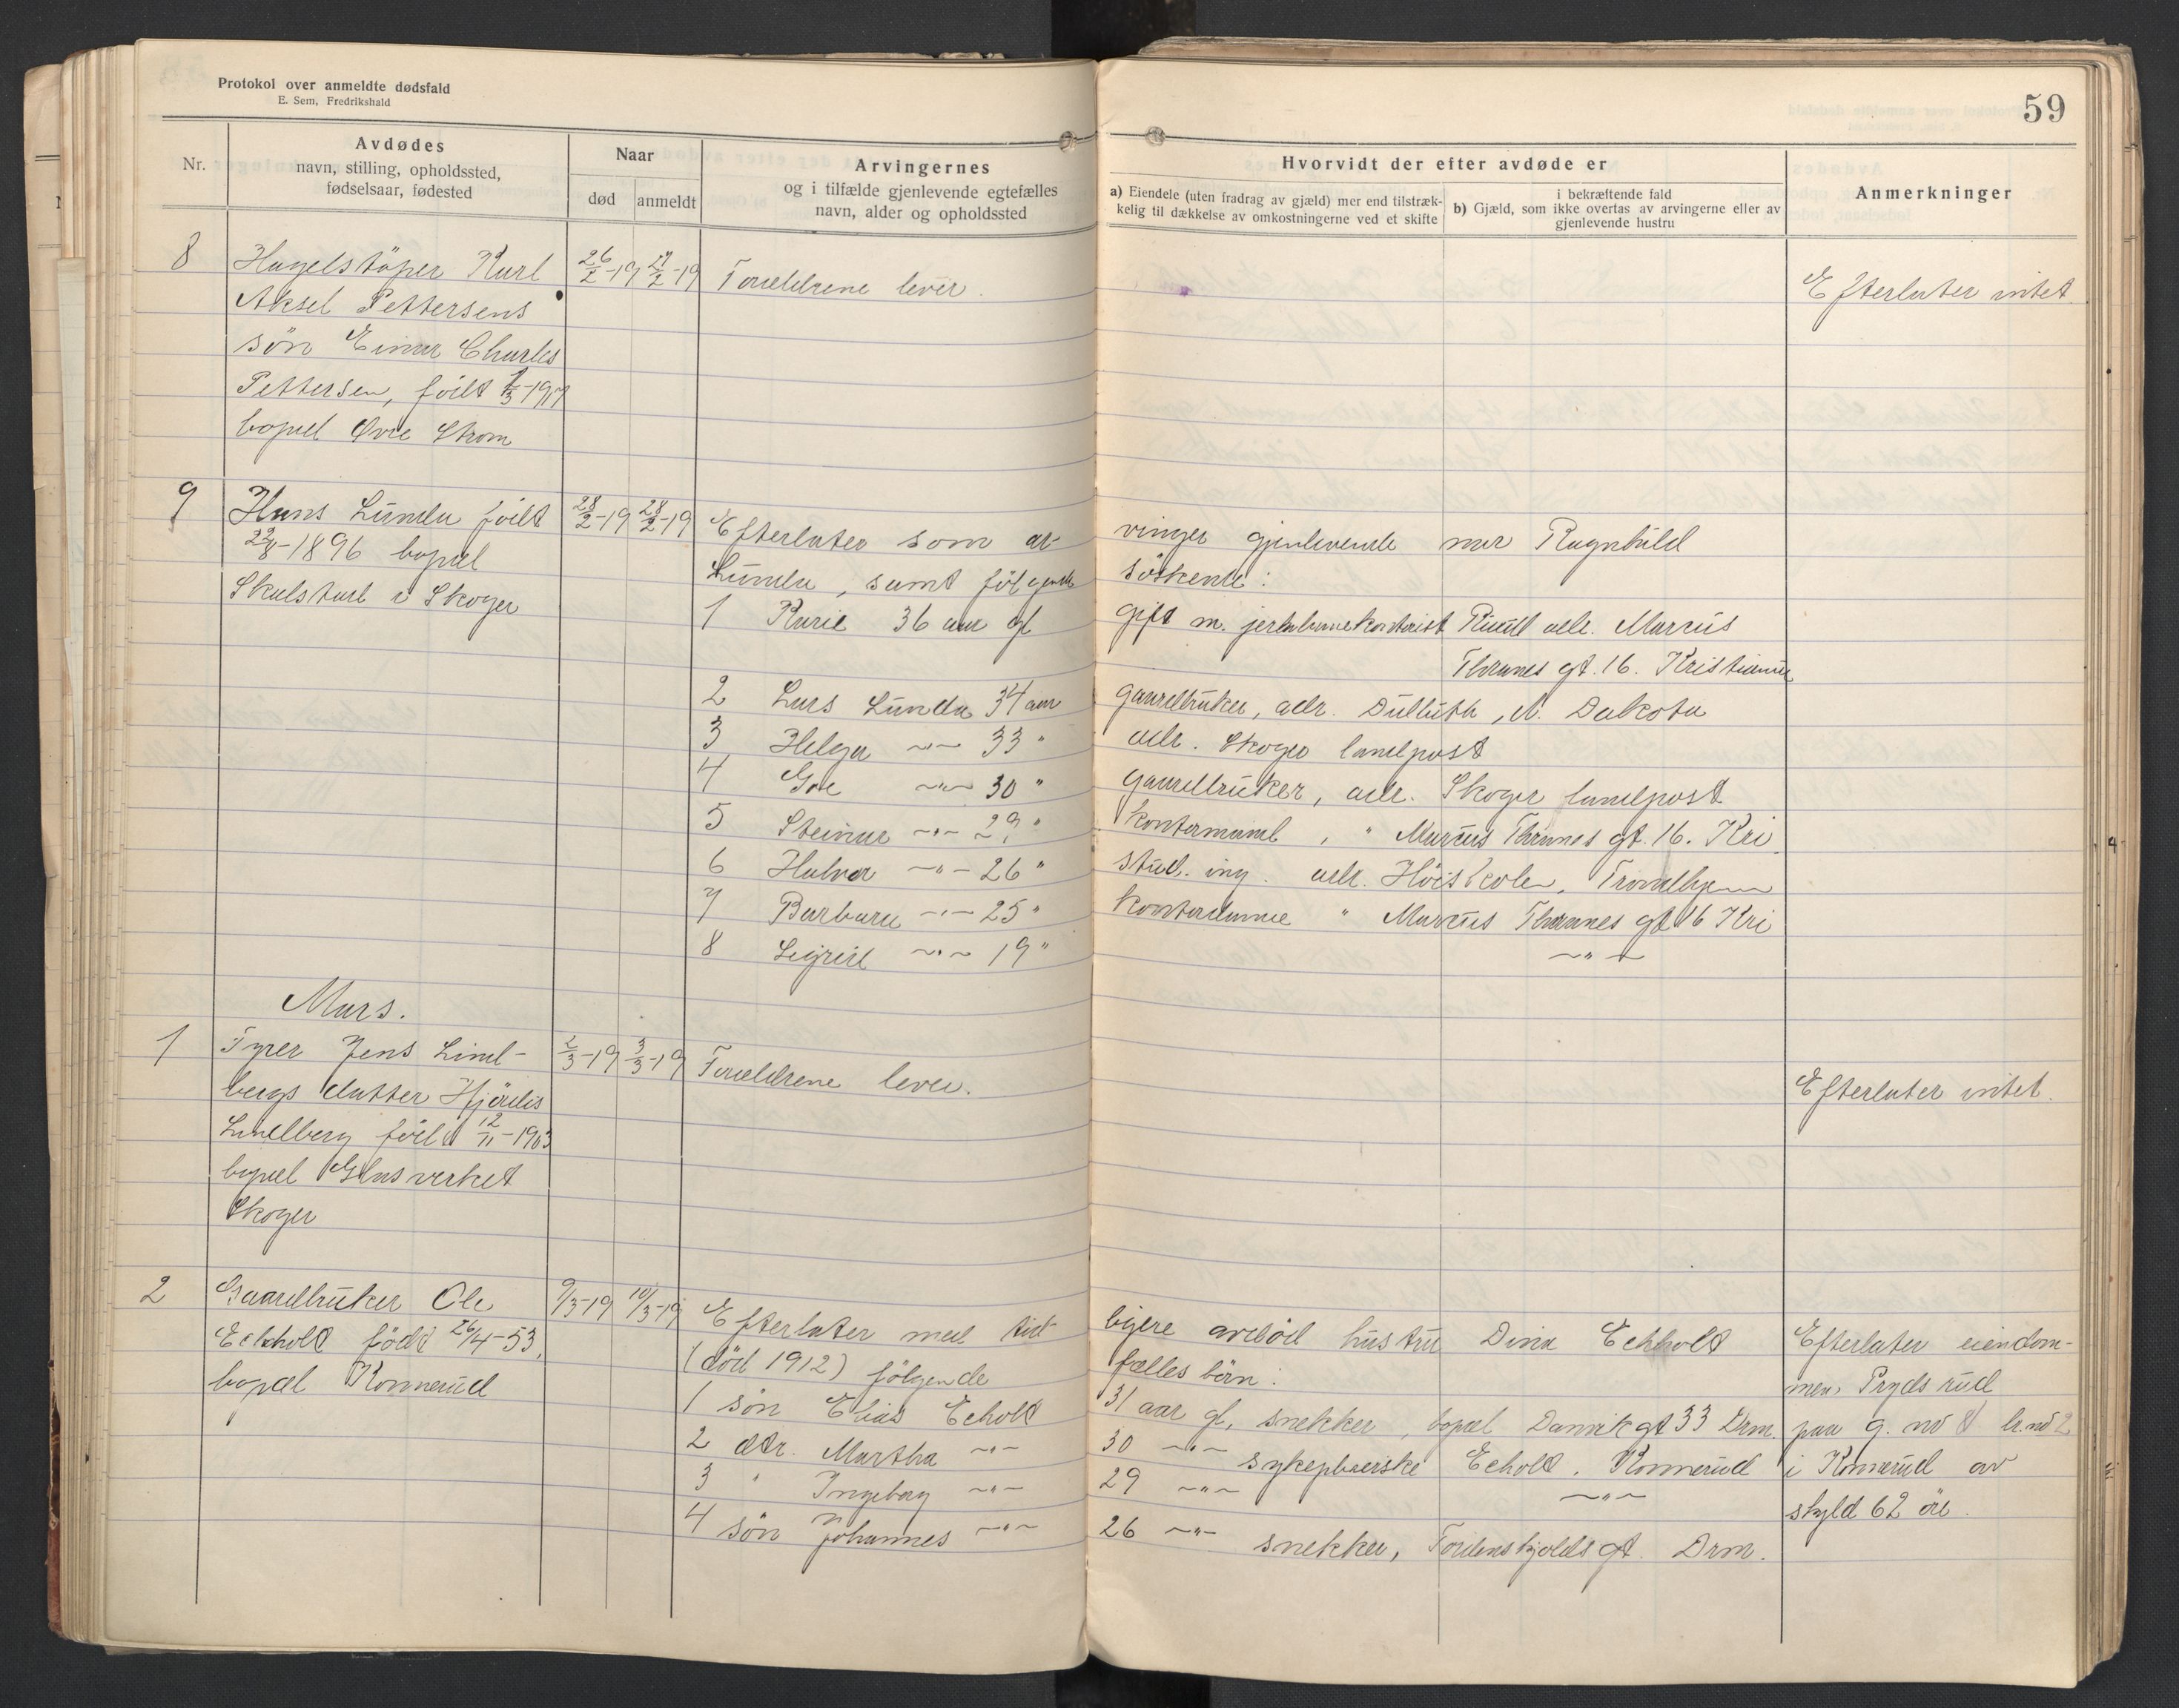 Protokol over anmeldte dødsfald
E. Sem, Fredrikshald
59
Nr.
Avdødes
navn, stilling, opholdssted,
fødselsaar, fødested
Naar
død
anmeldt
Arvingernes
og i tilfælde gjenlevende egtefælles
navn, alder og opholdssted
Hvorvidt der efter avdøde er
a) Eiendele (uten fradrag av gjæld) mer end tilstræk-
kelig til dækkelse av omkostningerne ved et skifte
i bekræftende fald
b) Gjæld, som ikke overtas av arvingerne eller av
gjenlevende hustru
Anmerkninger
8 Hagelstøper Karl 26/2-19 27/2-19 Forældrene lever. Efterlater intet.
Aksel Pettersens
søn Einar Charles
Pettersen, født 1/3-1917
bopæl Øvre Strøm
9 Hans Lunda født 28/2-19 28/2-19 Efterlater som ar- vinger gjenlevende mor Ragnhild
22/8-1896 bopæl Lunda, samt følgende søskende:
Skalstad i Skoger 1 Kari 36 aar gl gift m. jernbanekontorist Ruud adr. Marcus
Thranes gt. 16. Kristiania
2 Lars Lunda 34 aar gaardbruker, adr. Dulluth, N. Dakota
3 Helga -"- 33 " adr. Skoger landpost
4 Gro -"- 30 " gaardbruker, adr. Skoger landpost
5 Steinar -"- 29 " kontormand, " Marcus Thranes gt. 16. Kri.
6 Halvor -"- 26 " stud. ing. adr. Høiskolen, Trondhjem
7 Barbara -"- 25 " kontordame " Marcus Thranes gt 16 Kri
8 Sigrid -"- 19 " -"-
Mars.
1 Fyrer Jens Lind- 2/3-19 3/3-19 Forældrene lever. Efterlater intet.
bergs datter Hjørdis
Lindberg født 12/11-1903
bopæl Glasverket
Skoger
2 Gaardbruker Ole 9/3-19 10/3-19 Efterlater med tid- ligere avdød hustru Dina Echholt Efterlater eiendom-
Echholt født 26/4-53, (død 1912) følgende fælles børn: men Prydsrud
bopæl Konnerud 1 søn Elias Echolt 31 aar gl, snekker, bopæl Danvikgt 33 Drm. paa g. no 8 br.no 2
2 dtr. Martha -"- 30 -"- sykepleierske Echolt. Konnerud i Konnerud av
3 " Ingeborg -"- 29 -"- -"- skyld 62 øre.
4 søn Johannes -"- 26 -"- snekker, Tordenskjolds gt. Drm.